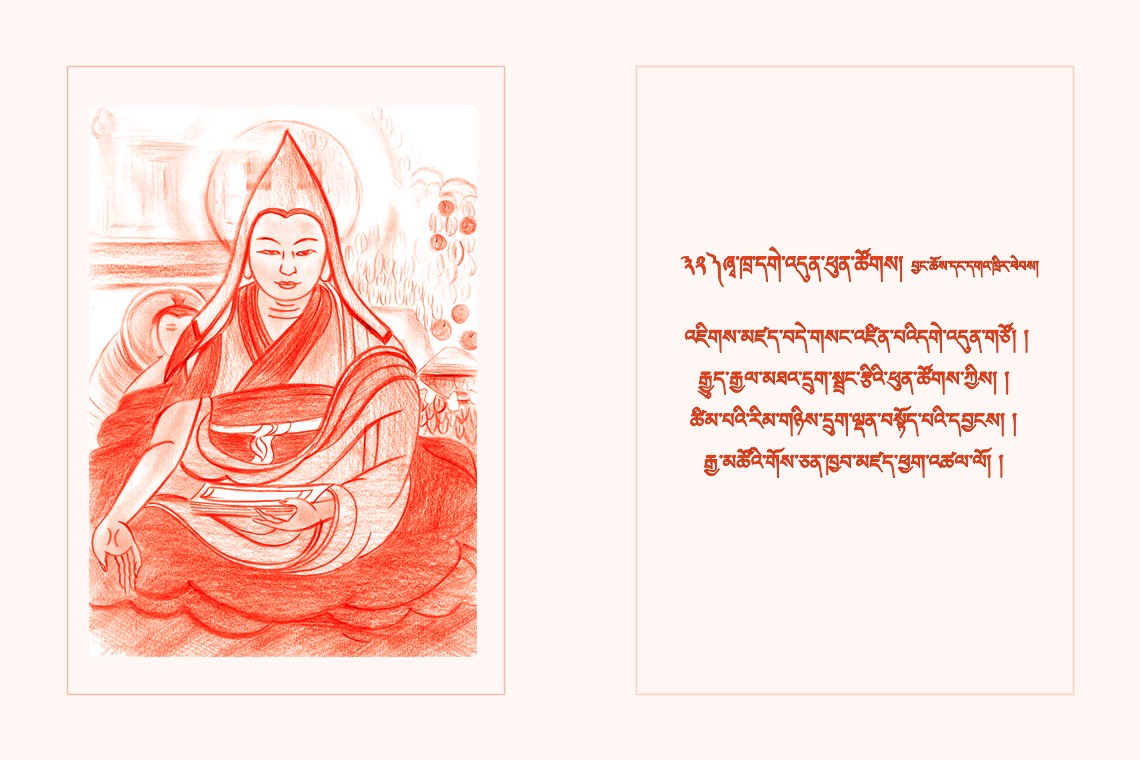 ༣༢ ༽ཞྭ་ཁྲ་དགེ་འདུན་ཕུན་ཚོགས། བྱང་ཆོས་དང་དགའ་ཁྲིར་ཕེབས།
འཇིགས་མཛད་བདེ་གསང་འཛིན་པའི་དགེ་འདུན་གཙོ། །
རྒྱུད་རྒྱལ་མཐའ་དྲུག་སྦྲང་རྩིའི་ཕུན་ཚོགས་ཀྱིས། །
ཚིམ་པའི་རིམ་གཉིས་དྲུག་ལྡན་བསྟོད་པའི་དབྱངས། །
རྒྱ་མཚོའི་གོས་ཅན་ཁྱབ་མཛད་ཕྱག་འཚལ་ལོ། །